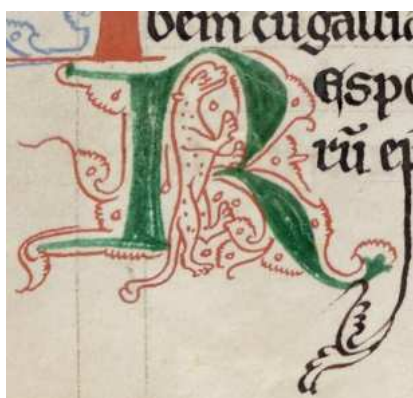 bem cū gallia
Respo
rū ep